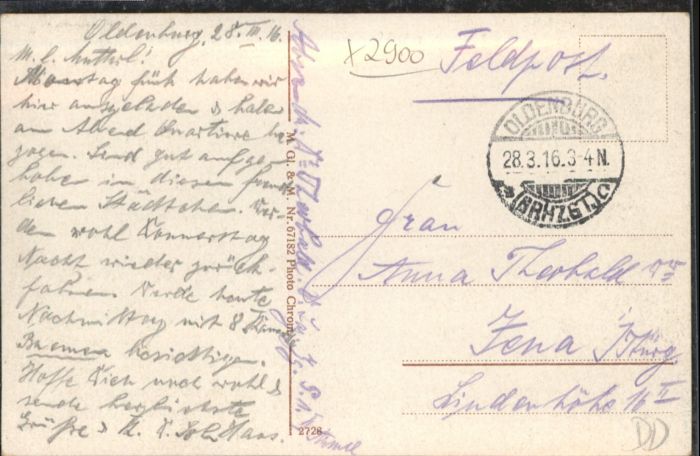 Oldenburg, 28. III. 16.
M. l. Mutterl!
Montag früh haben wir
hier ausgeladen & haben
am Abend Quartiere be
zogen. Sind gut aufge
hoben in diesem freund
lichen Städtchen. Wer
den wohl Donnerstag
Nacht wieder zurück
fahren. Werde heute
Nachmittag mit 8
Bremen besichtigen.
Hoffe Dich noch wohl &
sende herzlichste
Grüße &
Haas.
M. Gl. & M. Nr. 67182 Photo Chrom
2728
x2900
Feldpost.
OLDENBURG
28.3.16.3-4N.
(GRHZGT.)
Frau
Anna Theobald
Jena i/Thürg
Lindenhöhe